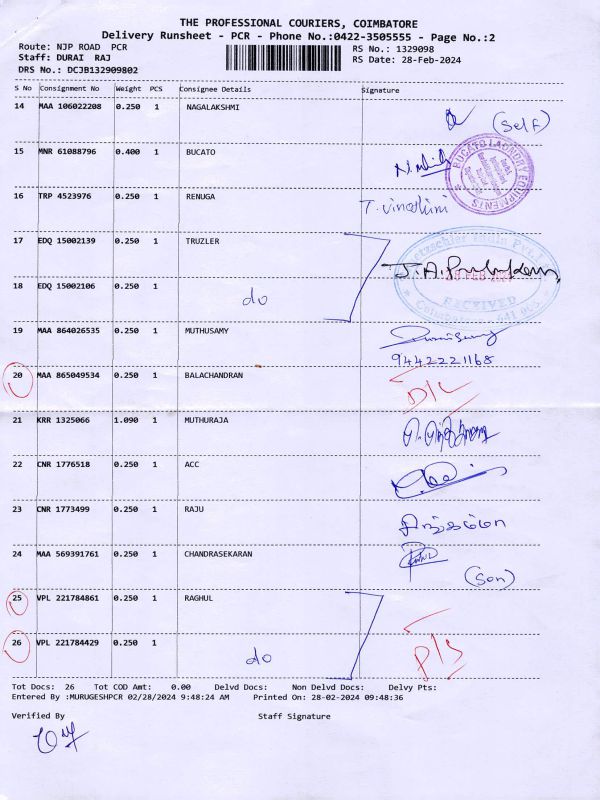 THE PROFESSIONAL COURIERS, COIMBATORE
Delivery Runsheet - PCR - Phone No.:0422-3505555 - Page No.:2
Route: NJP ROAD PCR RS No.: 1329098
Staff: DURAI RAJ RS Date: 28-Feb-2024
DRS No.: DCJB132909802
S No Consignment No Weight PCS Consignee Details Signature
14 MAA 106022208 0.250 1 NAGALAKSHMI
(Self)
15 MNR 61088796 0.400 1 BUCATO
BUCATO LAUNDRY EQUIPMENTS
16 TRP 4523976 0.250 1 RENUGA
17 EDQ 15002139 0.250 1 TRUZLER
18 EDQ 15002106 0.250 1 do
RECEIVED
19 MAA 864026535 0.250 1 MUTHUSAMY
9442221168
20 MAA 865049534 0.250 1 BALACHANDRAN D/L
21 KRR 1325066 1.090 1 MUTHURAJA
22 CNR 1776518 0.250 1 ACC
23 CNR 1773499 0.250 1 RAJU
24 MAA 569391761 0.250 1 CHANDRASEKARAN
(Son)
25 VPL 221784861 0.250 1 RAGHUL
26 VPL 221784429 0.250 1 do
Tot Docs: 26 Tot COD Amt: 0.00 Delvd Docs: Non Delvd Docs: Delvy Pts:
Entered By :MURUGESHPCR 02/28/2024 9:48:24 AM Printed On: 28-02-2024 09:48:36
Verified By Staff Signature